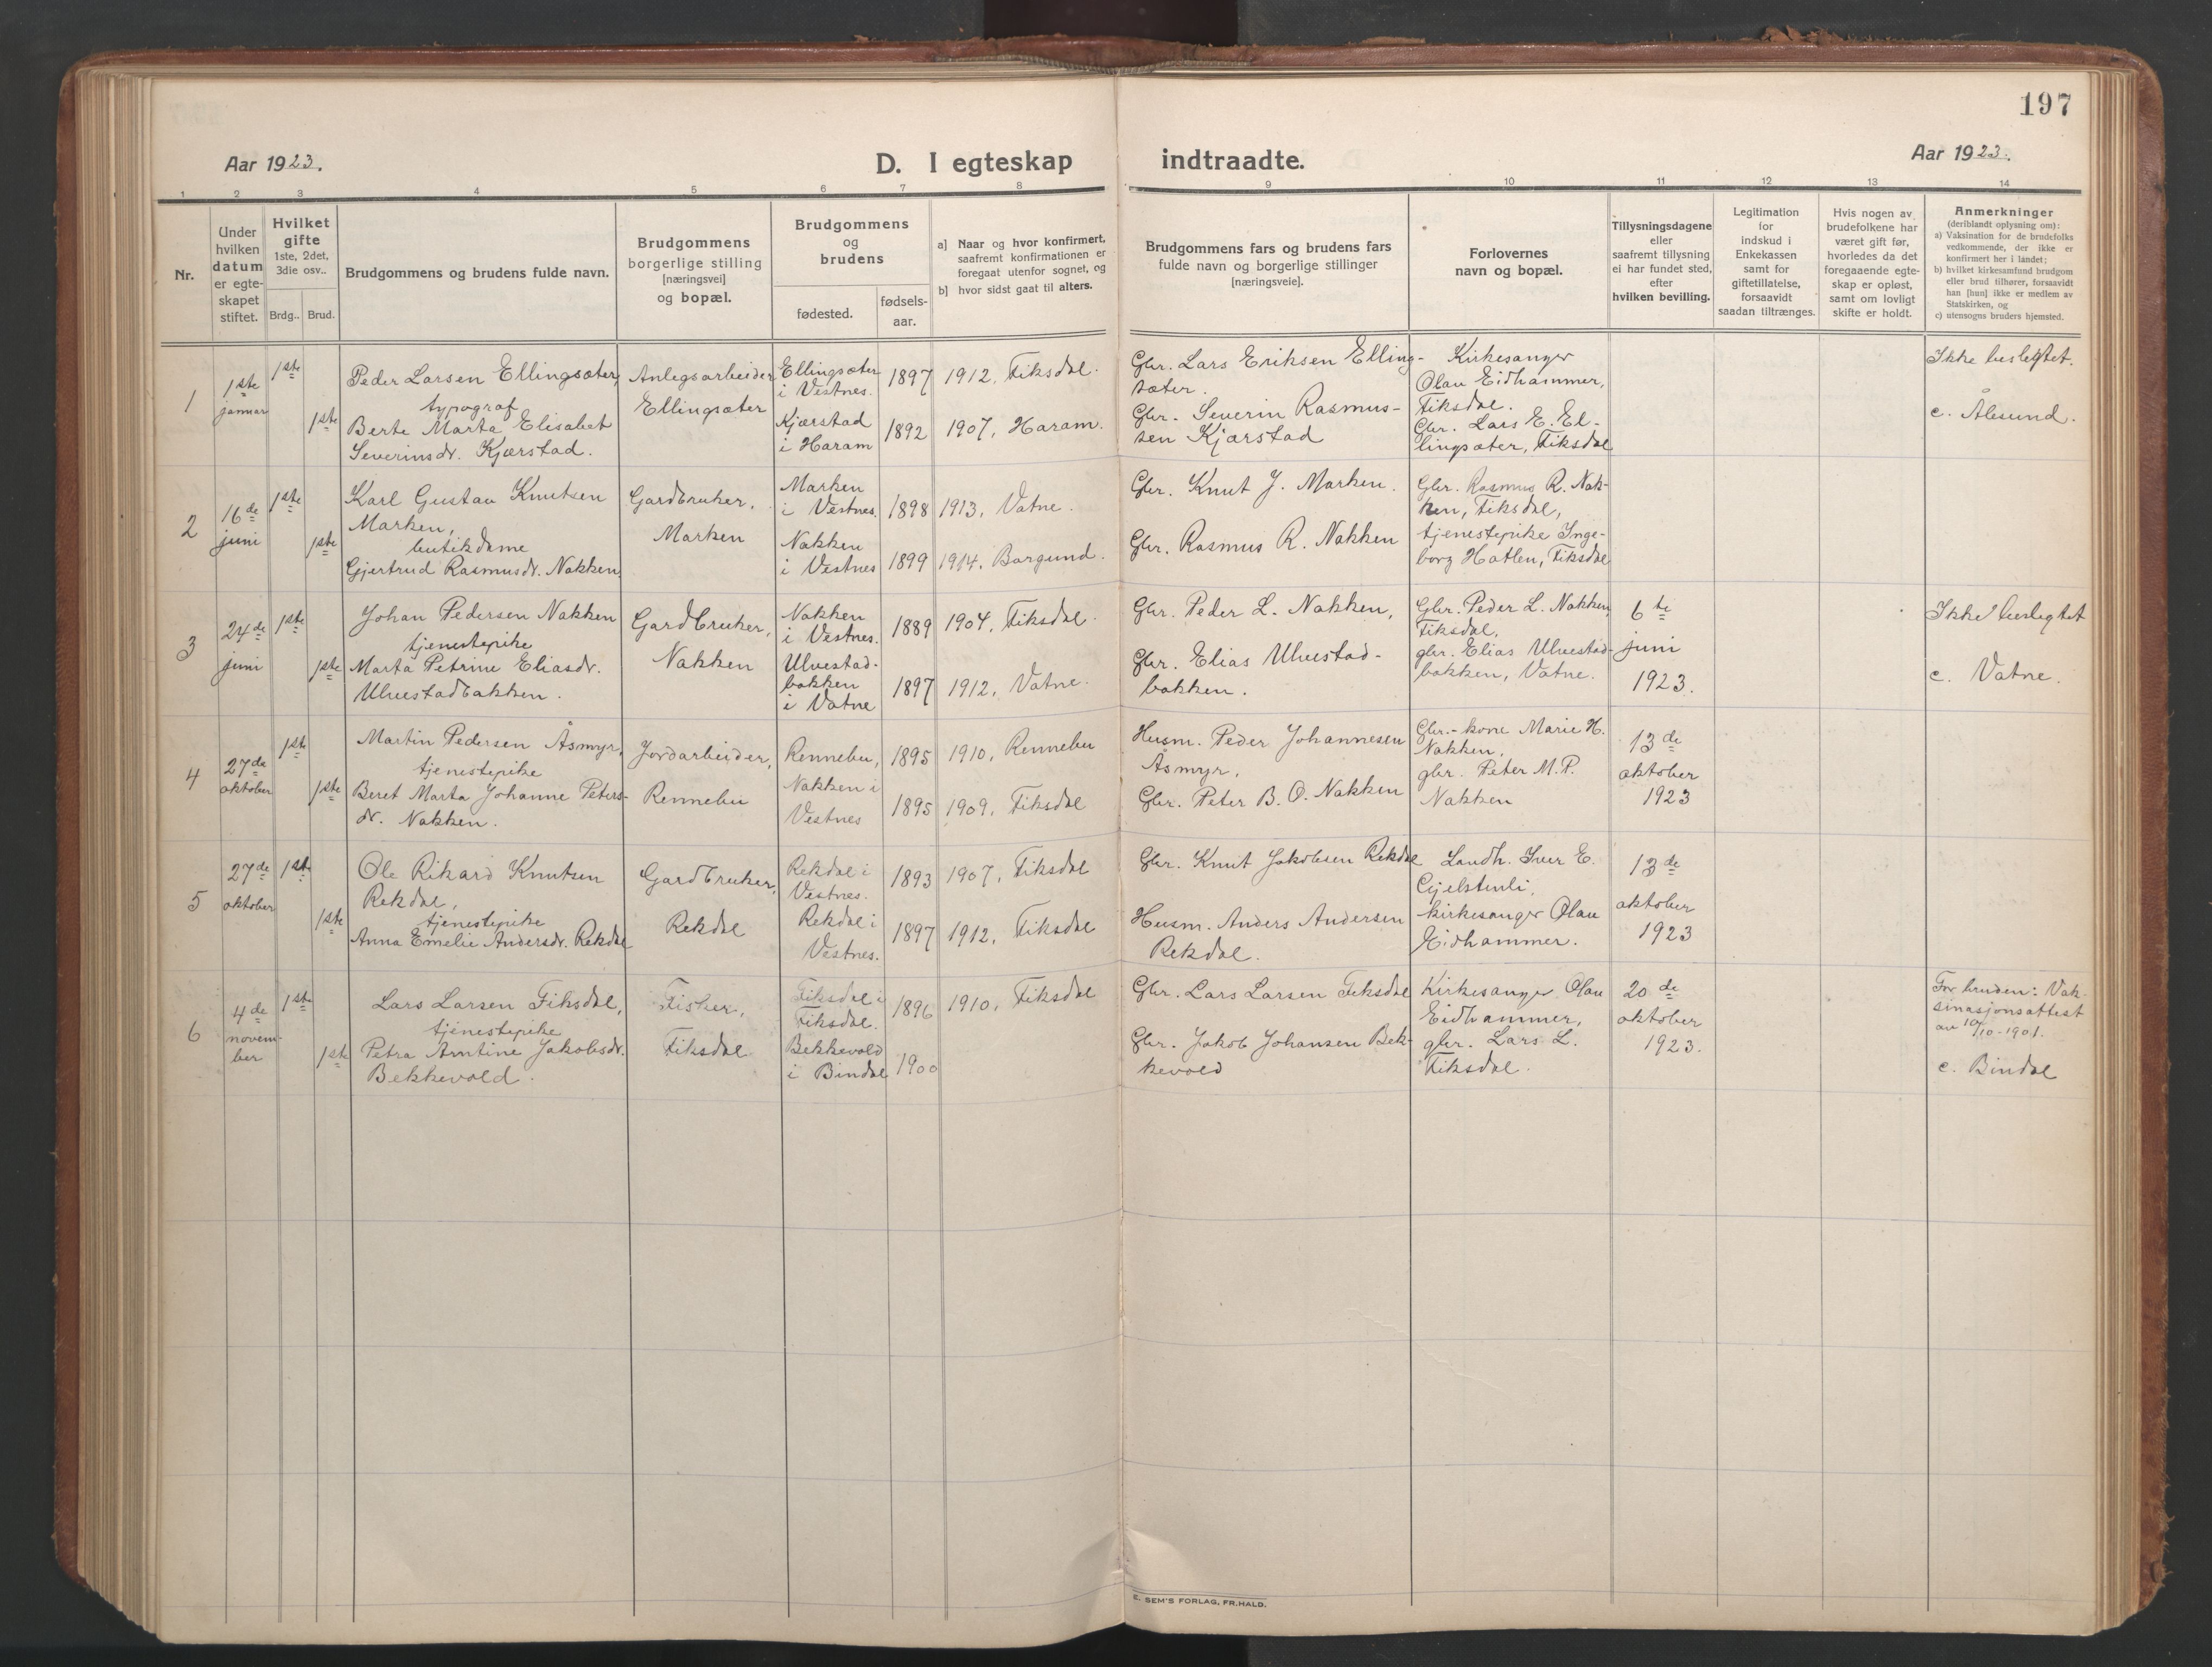 197
Aar 1923.
D. I egteskap indtraadte.
Aar 1923.
1 2 3 4 5 6 7 8 9 10 11 12 13 14
Nr.
Under
hvilken
datum
er egte-
skapet
stiftet.
Hvilket
gifte
1ste, 2det,
3die osv..
Brdg.. Brud.
Brudgommens og brudens fulde navn.
Brudgommens
borgerlige stilling
[næringsvei]
og bopæl.
Brudgommens
og
brudens
fødested.
fødsels-
aar.
a] Naar og hvor konfirmert,
saafremt konfirmationen er
foregaat utenfor sognet, og
b] hvor sidst gaat til alters.
Brudgommens fars og brudens fars
fulde navn og borgerlige stillinger
[næringsveie].
Forlovernes
navn og bopæl.
Tillysningsdagene
eller
saafremt tillysning
ei har fundet sted,
efter
hvilken bevilling.
Legitimation
for
indskud i
Enkekassen
samt for
giftetillatelse,
forsaavidt
saadan tiltrænges.
Hvis nogen av
brudefolkene har
været gift før,
hvorledes da det
foregaaende egte-
skap er opløst,
samt om lovligt
skifte er holdt.
Anmerkninger
(deriblandt oplysning om):
a) Vaksination for de brudefolks
vedkommende, der ikke er
konfirmert her i landet;
b) hvilket kirkesamfund brudgom
eller brud tilhører, forsaavidt
han [hun] ikke er medlem av
Statskirken, og
c) utensogns bruders hjemsted.
1
1ste
januar
1ste
1ste
Peder Larsen Ellingsæter,
typograf
Berte Marta Elisabet
Severinsdr. Kjærstad.
Anlegsarbeider
Ellingsæter
Ellingsæter
i Vestnes.
Kjærstad
i Haram
1897
1892
1912, Fiksdal.
1907, Haram.
Gbr. Lars Eriksen Elling-
sæter.
Gbr. Severin Rasmus-
sen Kjærstad
Kirkesanger
Olau Eidhammer,
Fiksdal.
Gbr. Lars E. El-
lingsæter, Fiksdal
Ikke beslegtet.
c. Ålesund.
2
16de
juni
1ste
1ste
Karl Gustav Knutsen
Marken,
butikdame
Gjertrud Rasmusdr. Nakken,
Gardbruker,
Marken
Marken
i Vestnes.
Nakken
i Vestnes
1898
1899
1913, Vatne.
1914, Borgund.
Gbr. Knut J. Marken.
Gbr. Rasmus R. Nakken
Gbr. Rasmus R. Nak-
ken, Fiksdal,
tjenestepike Inge-
borg Hatlen, Fiksdal
3
24de
juni
1ste
1ste
Johan Pedersen Nakken
tjenestepike
Marta Petrine Eliasdr.
Ulvestadbakken.
Gardbruker,
Nakken
Nakken
i Vestnes.
Ulvestad-
bakken
i Vatne
1889
1897
1904, Fiksdal.
1912, Vatne.
Gbr. Peder L. Nakken,
Gbr. Elias Ulvestad-
bakken.
Gbr. Peder L. Nakken,
Fiksdal,
gbr. Elias Ulvestad-
bakken, Vatne.
6te
juni
1923.
Ikke beslegtet
c. Vatne.
4
27de
oktober
1ste
1ste
Martin Pedersen Åsmyr,
tjenestepike
Beret Marta Johanne Peters-
dr. Nakken.
Jordarbeider,
Rennebu
Rennebu,
Nakken i
Vestnes
1895
1895
1910, Rennebu
1909, Fiksdal
Husm. Peder Johannesen
Åsmyr,
Gbr. Peter B. O. Nakken
Gbr.-kone Marie H.
Nakken,
gbr. Peter M. P.
Nakken
13de
oktober
1923
5
27de
oktober
1ste
1ste
Ole Rikard Knutsen
Rekdal,
tjenestepike
Anna Emelie Andersdr. Rekdal
Gardbruker,
Rekdal
Rekdal i
Vestnes.
Rekdal i
Vestnes.
1893
1897
1907, Fiksdal
1912, Fiksdal
Gbr. Knut Jakobsen Rekdal
Husm. Anders Andersen
Rekdal.
Landh. Iver E.
Gjelstenli,
kirkesanger Olau
Eidhammer.
13de
oktober
1923
6
4de
novem-
ber
1ste
1ste
Lars Larsen Fiksdal,
tjenestepike
Petra Arntine Jakobsdr.
Bekkevold.
Fisker,
Fiksdal
Fiksdal i
Fiksdal.
Bekkevold
i Bindal
1896
1900
1910, Fiksdal
Gbr. Lars Larsen Fiksdal
Gbr. Jakob Johansen Bek-
kevold
Kirkesanger Olau
Eidhammer,
gbr. Lars L.
Fiksdal.
20de
oktober
1923.
For bruden: Vak-
sinasjonsattest
av 10/10-1901.
c. Bindal
E. SEM'S FORLAG, FR.HALD.